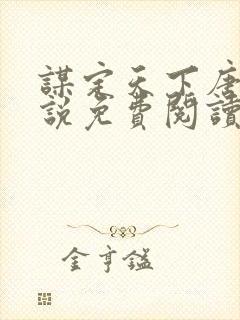 謀定天下唐
說免費閱讀
金亨鎰